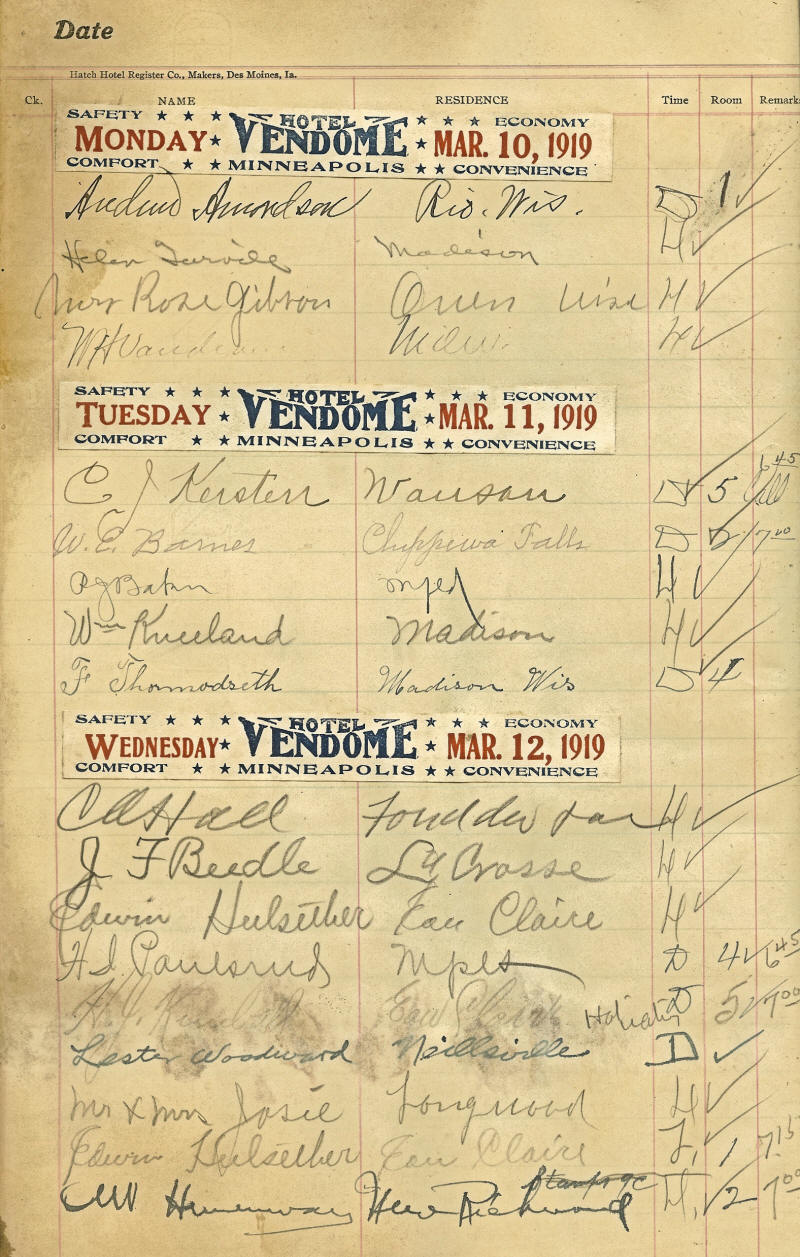 Date
Hatch Hotel Register Co., Makers, Des Moines, Ia.
Ck. NAME RESIDENCE Time Room Remarks
SAFETY HOTEL ECONOMY
MONDAY VENDOME MAR. 10, 1919
COMFORT MINNEAPOLIS CONVENIENCE
Amondson Rio. Wis. D 1 ✓
Helen Turville Madison H ✓
Mrs Rose Gibson Owen Wisc H ✓
WH H ✓
SAFETY HOTEL ECONOMY
TUESDAY VENDOME MAR. 11, 1919
COMFORT MINNEAPOLIS CONVENIENCE
6 45
C J Kersten Wausau D 5
W. E. Barnes Chippewa Falls D 2 7 00
Mpls H ✓
Wm Kneeland Madison H ✓
F Thormodseth Madison Wis D 4
SAFETY HOTEL ECONOMY
WEDNESDAY VENDOME MAR. 12, 1919
COMFORT MINNEAPOLIS CONVENIENCE
CA Hall Fond du Lac H ✓
J F Beedle La Crosse H ✓
Edwin Hulsether Eau Claire H ✓
H. I. Paulsrud Mpls D 4 ✓ 6 45
Eau Claire D 5 ✓ 7 00
Lester Woodward Neillsville D ✓
Mr & Mrs Josie Longwood H ✓
Edwin Hulsether Eau Claire L, ✓ 1 7 15
Hemenway New Richmond H, ✓ 2 7 00